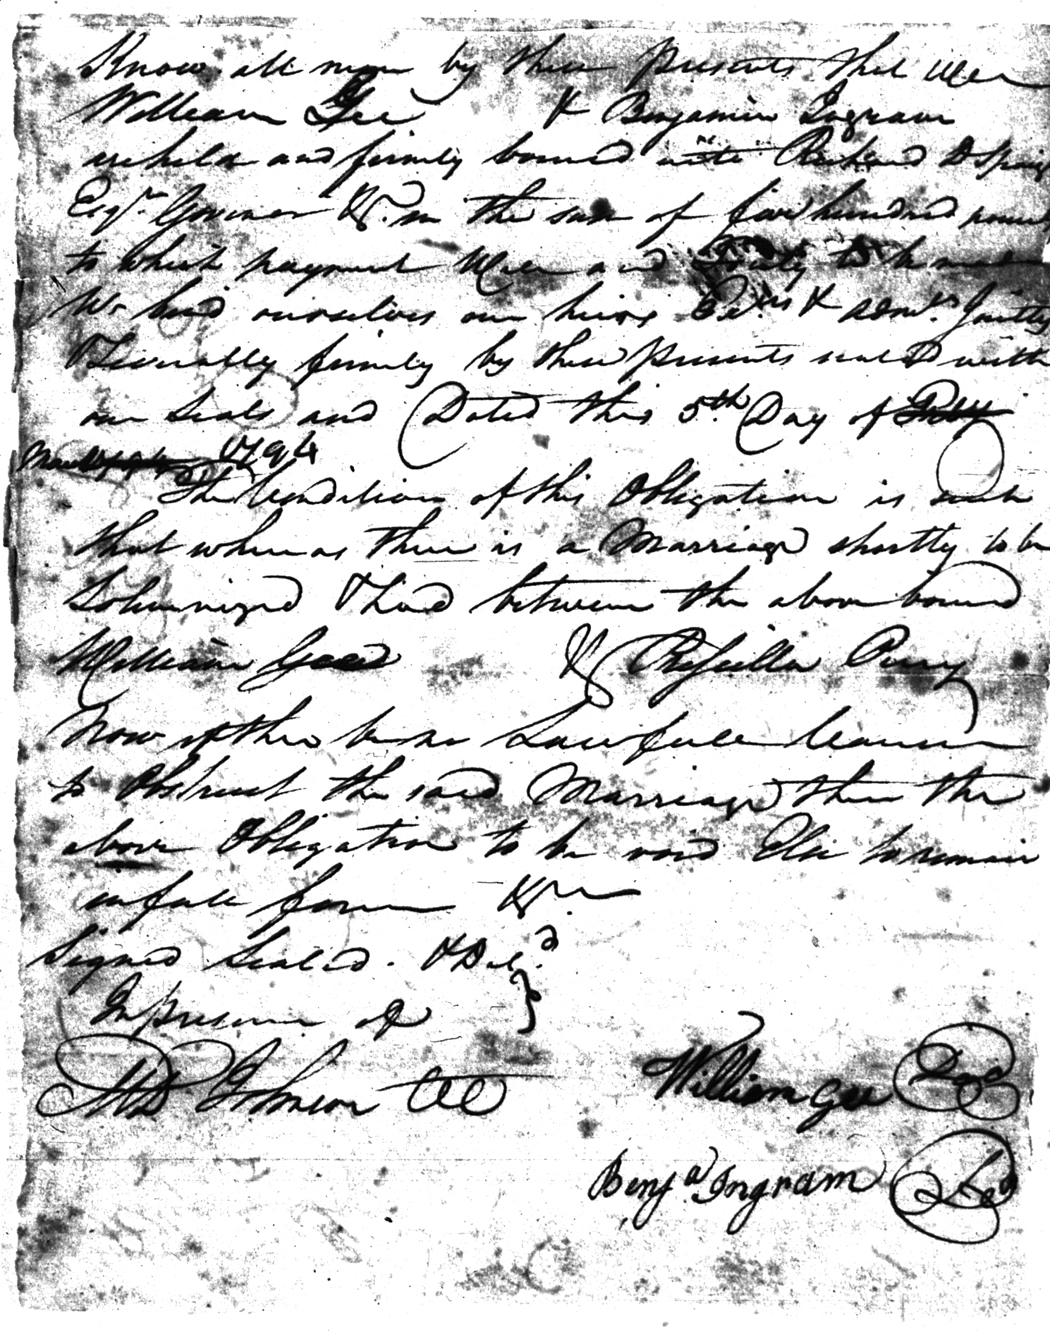 Know all men by these presents that Wee
William Gee & Benjamin Ingram
are held and firmly bound unto Richard D Spaig
Esqr. Governor &c. in the sum of five hundred pound
to which payment Well and Truly to be made
We bind ourselves our heirs Exers & admrs. Jointly
& Severally firmly by these presents sealed with
our Seals and Dated this 5th Day of
1794
The Condition of this Obligation is such
that whereas there is a Marriage shortly to be
Solemnized & had between the above bound
William Gee & Prissilla Perry
Now if there be no Lawfull Cause
to Obstruct the said Marriage then the
above Obligation to be void Else to remain
in full force &c
Signed Sealed. & Deld.
In presence of
Johnson CC
William Gee Seal
Benja Ingram Seal